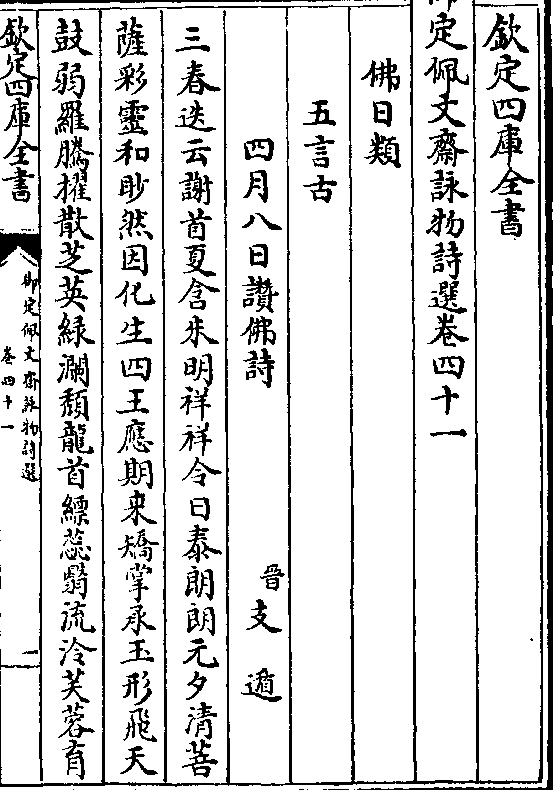 欽定四庫全書
御定佩文齋詠物詩選卷四十一
佛日類
五言古
四月八日讚佛詩
晉支遁
三春迭云謝首夏含朱明祥祥令日泰朗朗元夕清菩
薩彩靈和眇然因化生四王應期来矯掌承玉形飛天
鼓弱羅騰擢散芝英緑瀾頹龍首縹蕊翳流泠芙蓉育
欽定四庫全書
御定佩文齋詠物詩選
卷四十一
一